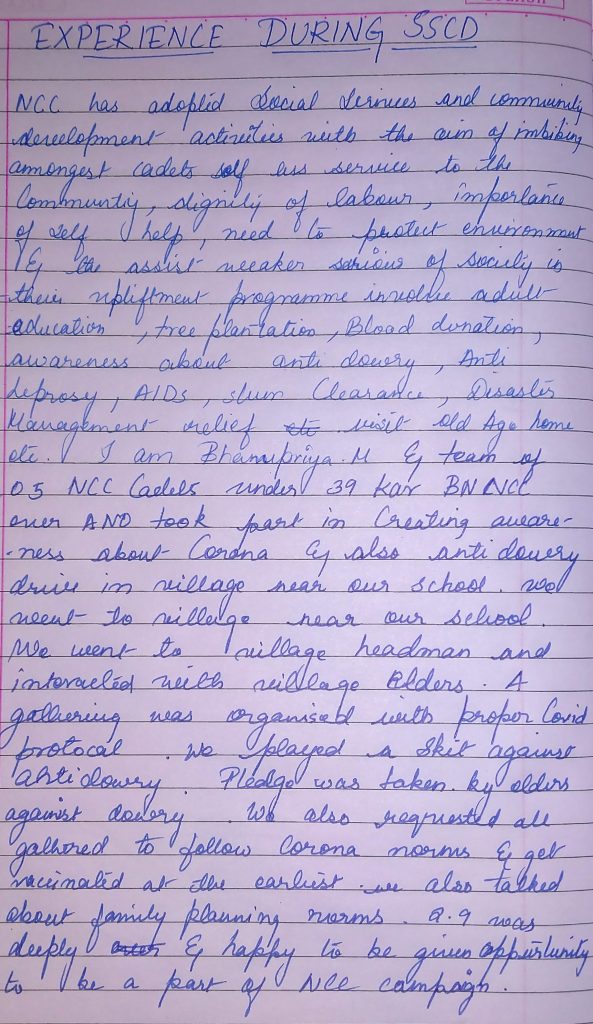 EXPERIENCE DURING SSCD
NCC has adopted Social Services and community
development activities with the aim of imbibing
amongest cadets self less service to the
Communtiy, dignity of labour, importance
of self help, need to protect environment
& the assist weaker of society in
their upliftment programme involve adult
education, tree plantation, Blood donation,
awareness about anti dowery, Anti
leprosy, AIDs, slum Clearance, Disaster
Management relief etc visit old Age home
etc. I am Bhanupriya.M & team of
05 NCC Cadets under 39 Kar BN NCC
over AND took part in Creating aware-
-ness about Corona & also anti dowery
drive in village near our school. we
went to village near our school.
We went to village headman and
interacted with village Elders. A
gathering was organised with proper Covid
protocal. We played a Skit against
antidowry. Pledge was taken by elders
against dowery. We also requested all
gathered to follow Corona norms & get
vaccinated at the earliest. we also talked
about family planning norms. was
deeply & happy to be given oppurtunity
to be a part of NCC campaign.